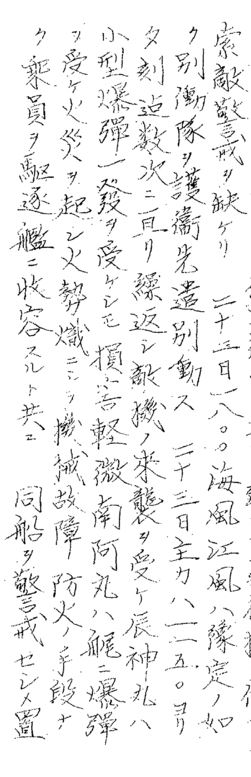 索敵警戒ヲ缺ケリ 二十二日一八〇〇海風江風ハ豫定ノ如
ク別働隊ヲ護衛先遣別動ス 二十三日主力ハ一一五〇ヨリ
夕刻迠数次ニ亘リ繰返シ敵機ノ来襲ヲ受ケ辰神丸ハ
小型爆彈一發ヲ受ケシモ損害軽微南阿丸ハ艉ニ爆彈
ヲ受ケ火災ヲ起シ火勢熾ニシテ機械故障 防火ノ手段ナ
ク乗員ヲ駆逐艦ニ收容スルト共ニ 同船ヲ警戒セシメ置